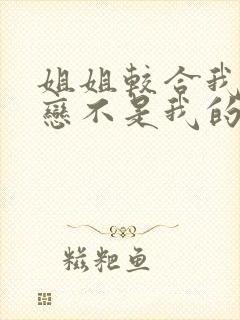 姐姐較合我
戀不是我的
糍粑鱼